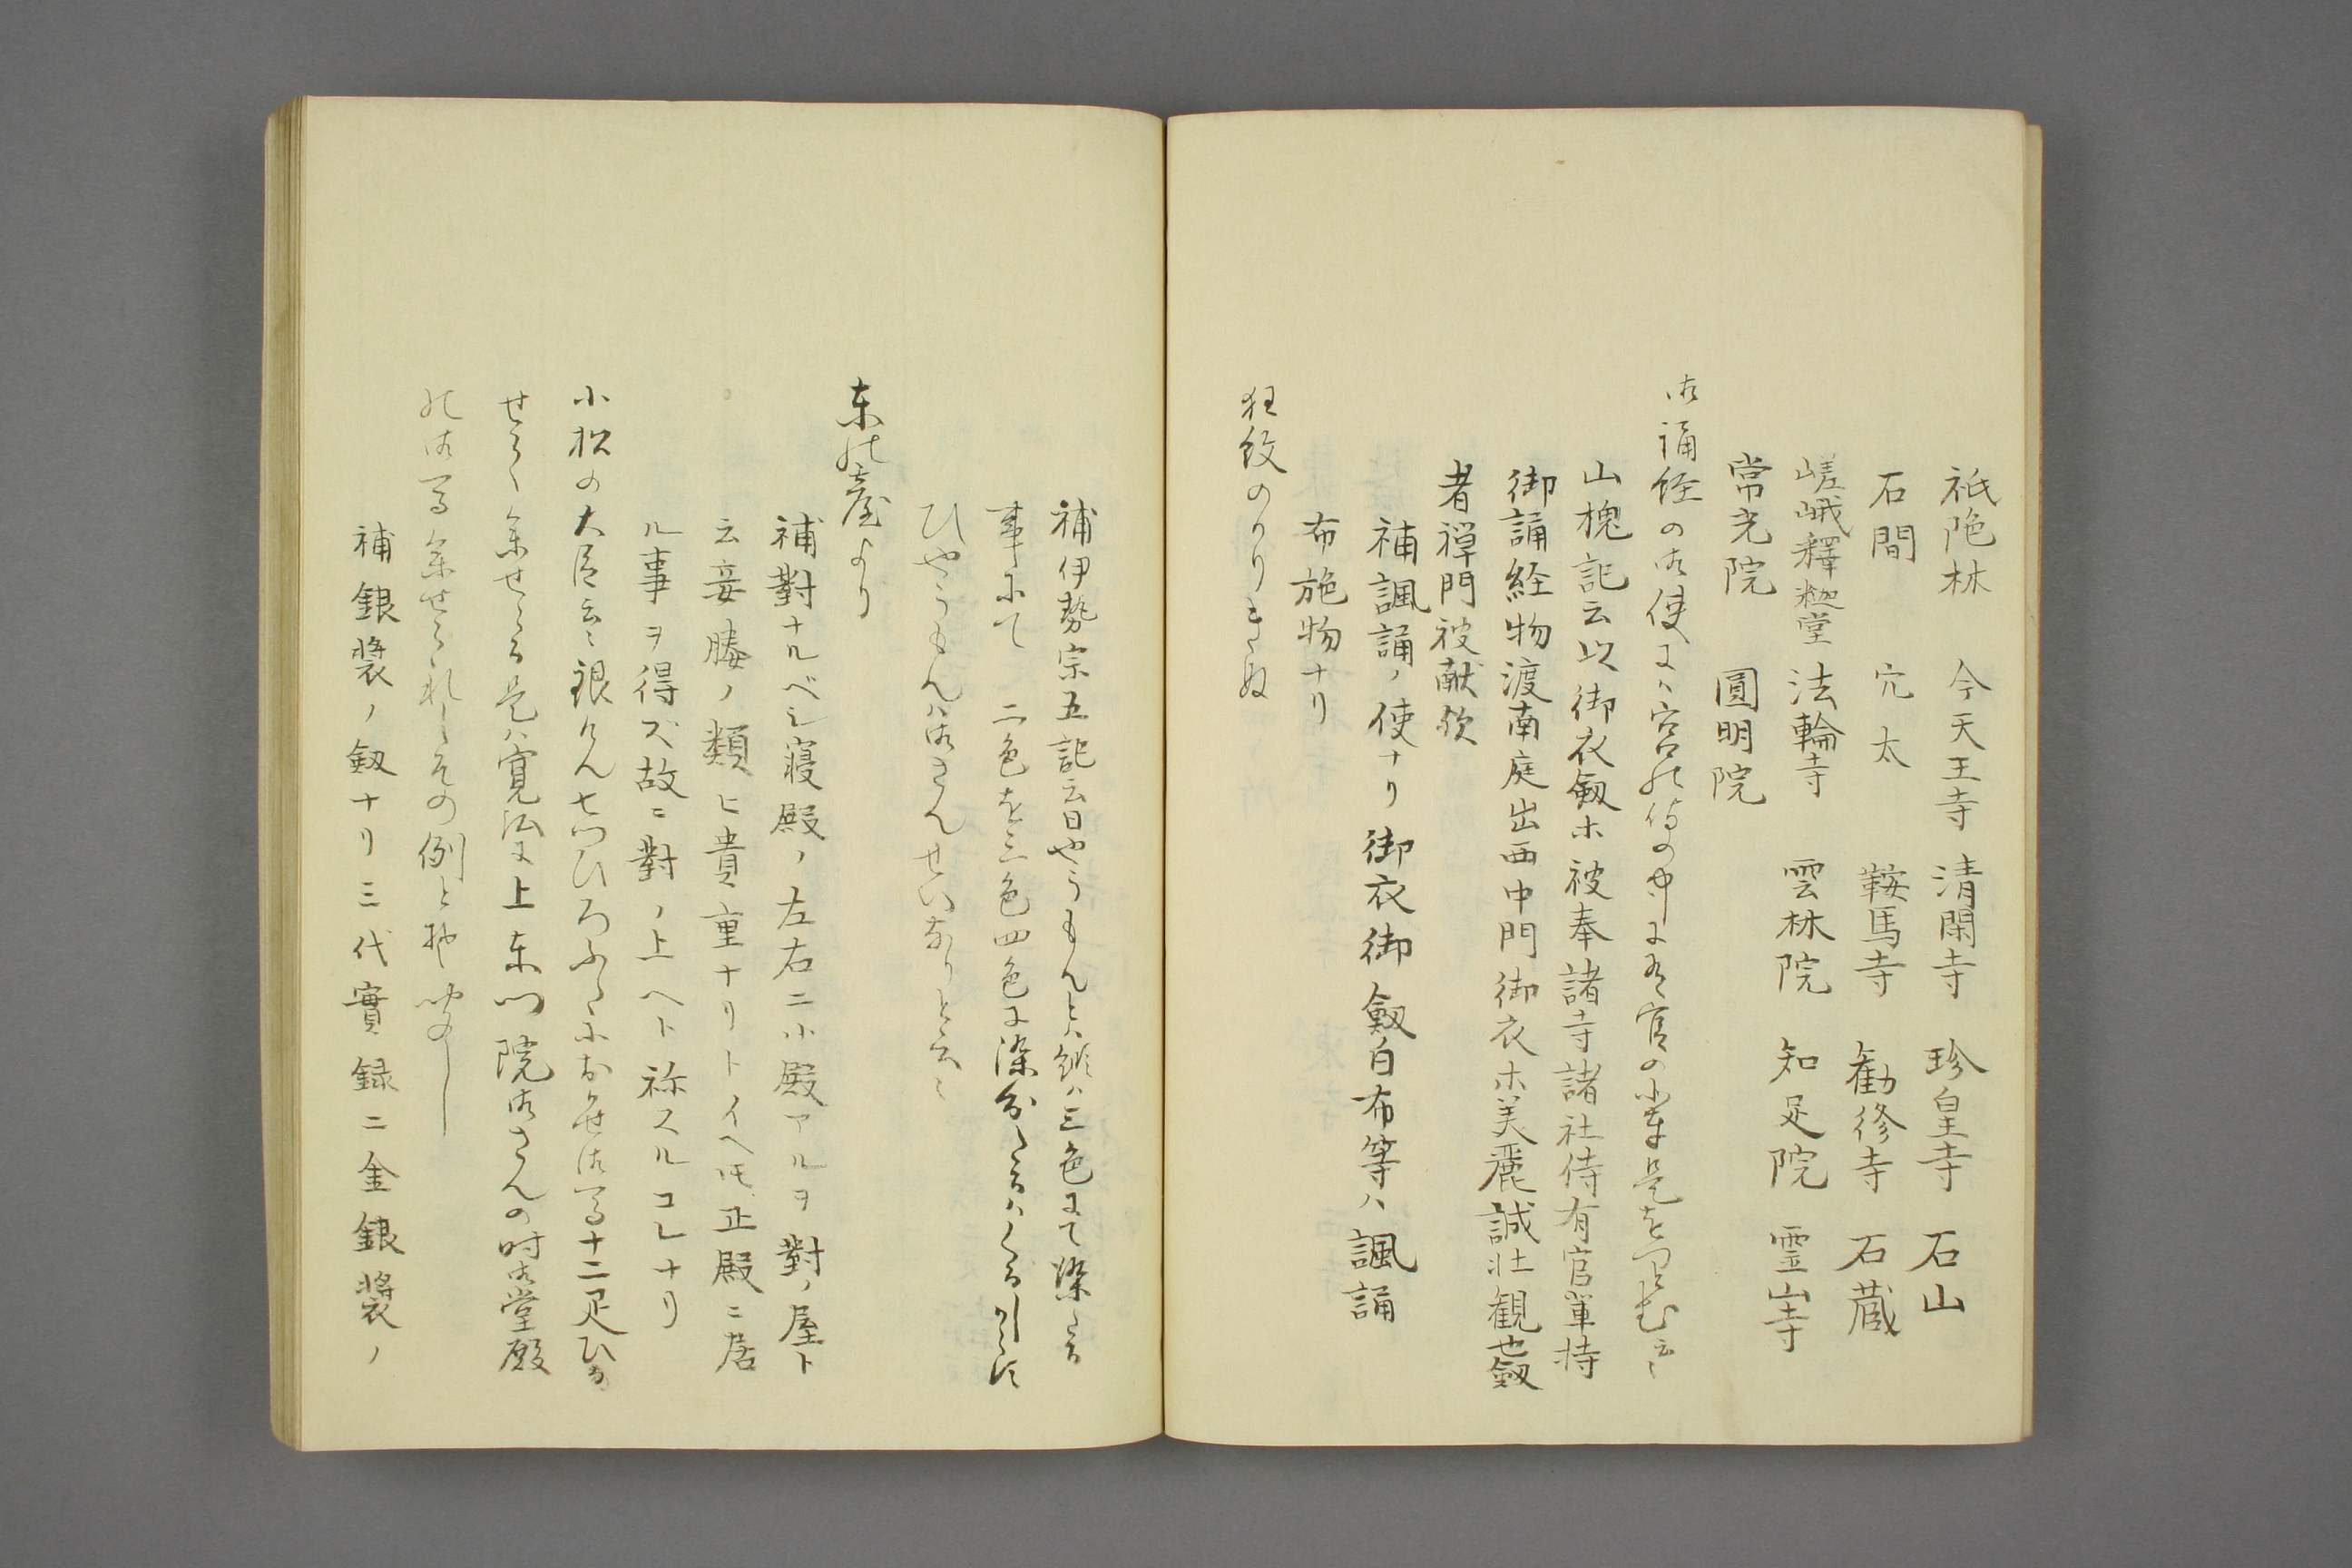 祇陁林　今天王寺　清閑寺　珍皇寺　石山
石間　穴太　鞍馬寺　勧修寺　石蔵
嵯峨釋迦堂　法輪寺　雲林院　知足院　霊山寺
常光院　圓明院
御誦経の御使には宮の侍の中に有官の輩是をつとむ云々
山槐記云以御衣劔木被奉諸寺諸社侍有官軰持
御誦経物渡南庭出西中門御衣木美麗誠壮観也劔
者禅門被献欤
補諷誦ノ使ナリ御衣御劔白布等ハ諷誦
布施物ナリ
狂紋のかりきぬ
補伊勢宗五記云日やうもんとハ縦ハ三色にて染たる
事にて二色を三色四色に染分たるハくる
ひやうもんハ御さんせいなりと云々
東の臺より
補對ナルベシ寝殿ノ左右ニ小殿アルヲ對ノ屋ト
云妾媵ノ類ヒ貴重ナリトイヘ𪜈正殿ニ居
ル事ヲ得ズ故ニ對ノ上ヘト祢スルコレナリ
小松の大臣云々銀けん七つひろふたにおかせ御馬十二疋ひか
せらく参せらる是ハ寛弘に上東門院御さんの時御堂殿
の御馬参せられしその例とぞ聞へし
補銀装ノ釼ナリ三代實録ニ金銀装ノ